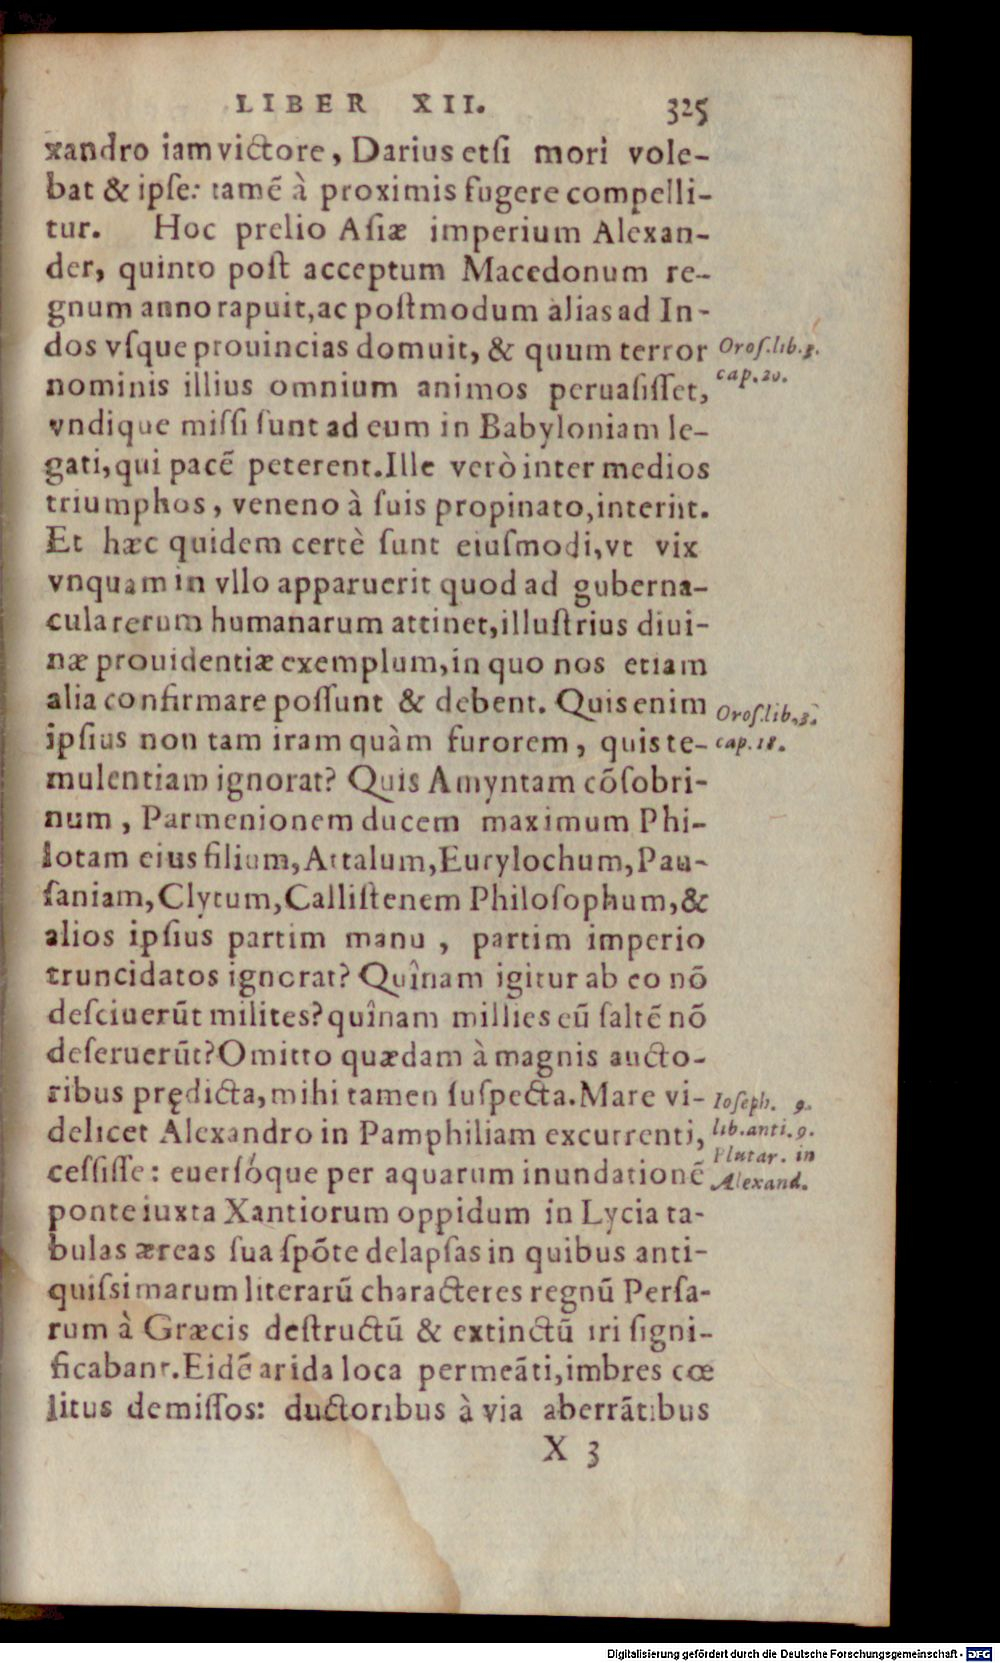 LIBER XII. 325
xandro iam victore, Darius etſi mori vole-
bat & ipſe: tamẽ à proximis fugere compelli-
tur. Hoc prelio Aſiæ imperium Alexan-
der, quinto poſt acceptum Macedonum re-
gnum anno rapuit, ac poſtmodum alias ad In-
dos vſque prouincias domuit, & quum terror
Oroſ. lib. 3.
cap. 20.
nominis illius omnium animos peruaſiſſet,
vndique miſſi ſunt ad eum in Babyloniam le-
gati, qui pacẽ peterent. Ille verò inter medios
triumphos, veneno à ſuis propinato, interiit.
Et hæc quidem certè ſunt eiuſmodi, vt vix
vnquam in vllo apparuerit quod ad guberna-
cula rerum humanarum attinet, illuſtrius diui-
næ prouidentiæ exemplum, in quo nos etiam
alia confirmare poſſunt & debent. Quis enim
Oroſ. lib. 3.
cap. 18.
ipſius non tam iram quàm furorem, quis te-
mulentiam ignorat? Quis Amyntam cõſobri-
num, Parmenionem ducem maximum Phi-
lotam eius filium, Attalum, Eurylochum, Pau-
ſaniam, Clytum, Calliſtenem Philoſophum, &
alios ipſius partim manu, partim imperio
truncidatos ignorat? Quînam igitur ab eo nõ
deſciuerũt milites? quînam millies eũ ſaltẽ nõ
deſeruerũt? Omitto quædam à magnis aucto-
ribus prędicta, mihi tamen ſuſpecta. Mare vi-
Ioſeph. 9.
lib. anti. 9.
Plutar. in
Alexand.
delicet Alexandro in Pamphiliam excurrenti,
ceſſiſſe: euerſóque per aquarum inundationẽ
ponte iuxta Xantiorum oppidum in Lycia ta-
bulas æreas ſua ſpõte delapſas in quibus anti-
quiſsimarum literarũ characteres regnũ Perſa-
rum à Græcis deſtructũ & extinctũ iri ſigni-
ficabant. Eidẽ arida loca permeãti, imbres cœ
litus demiſſos: ductoribus à via aberrãtibus
X 3
Digitalisierung gefördert durch die Deutsche Forschungsgemeinschaft - DFG